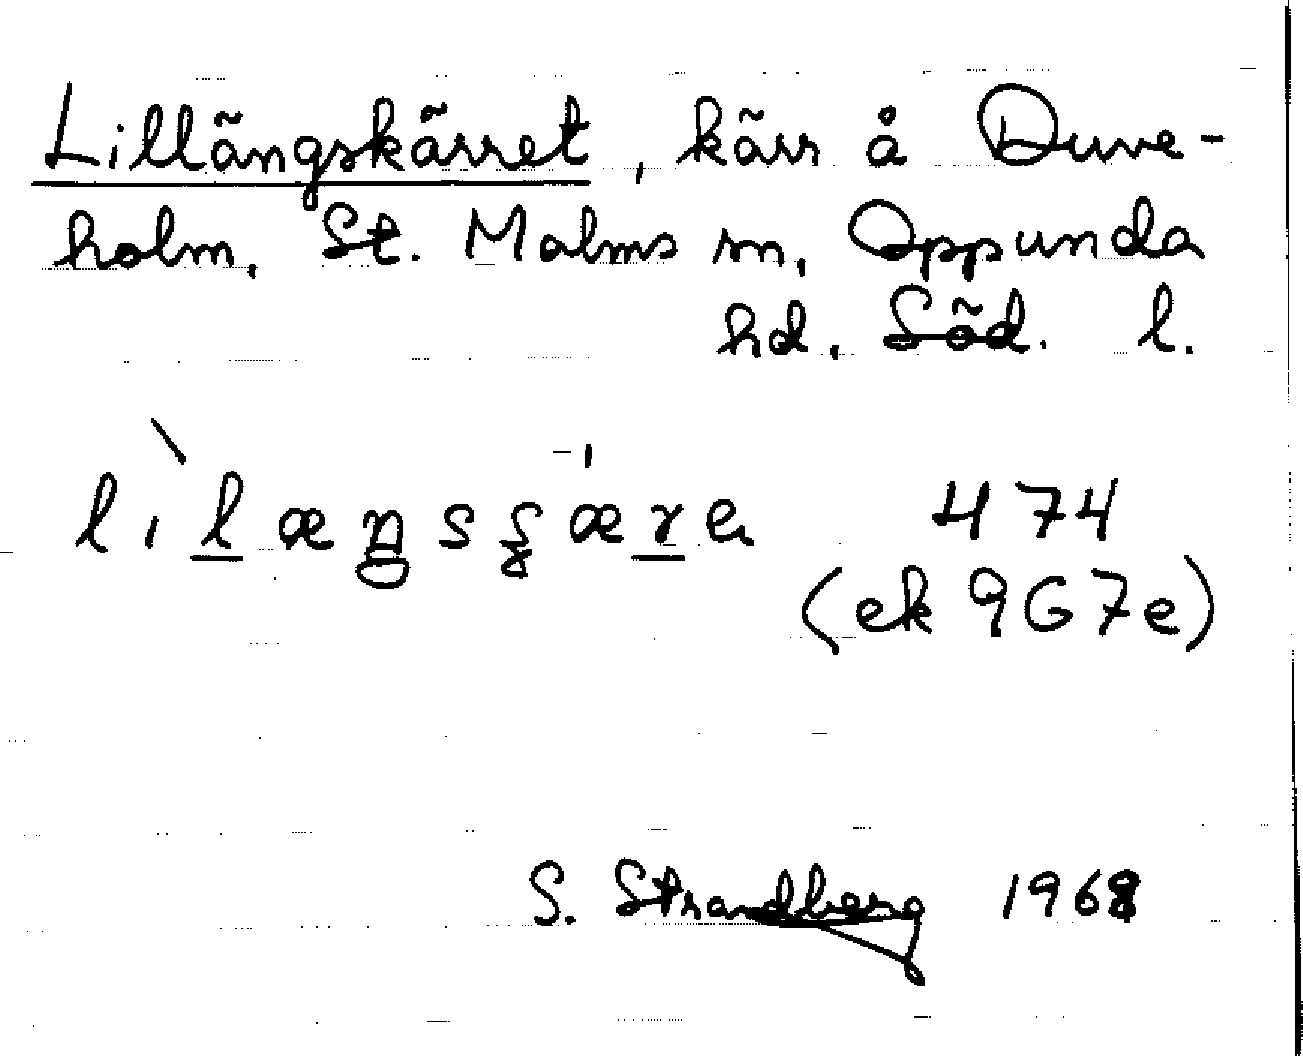 Lillängskärret, kärr å Duve-
holm, St. Malms sn, Oppunda
hd, Söd. l.
474
(ek 967e)
S. Strandberg 1968